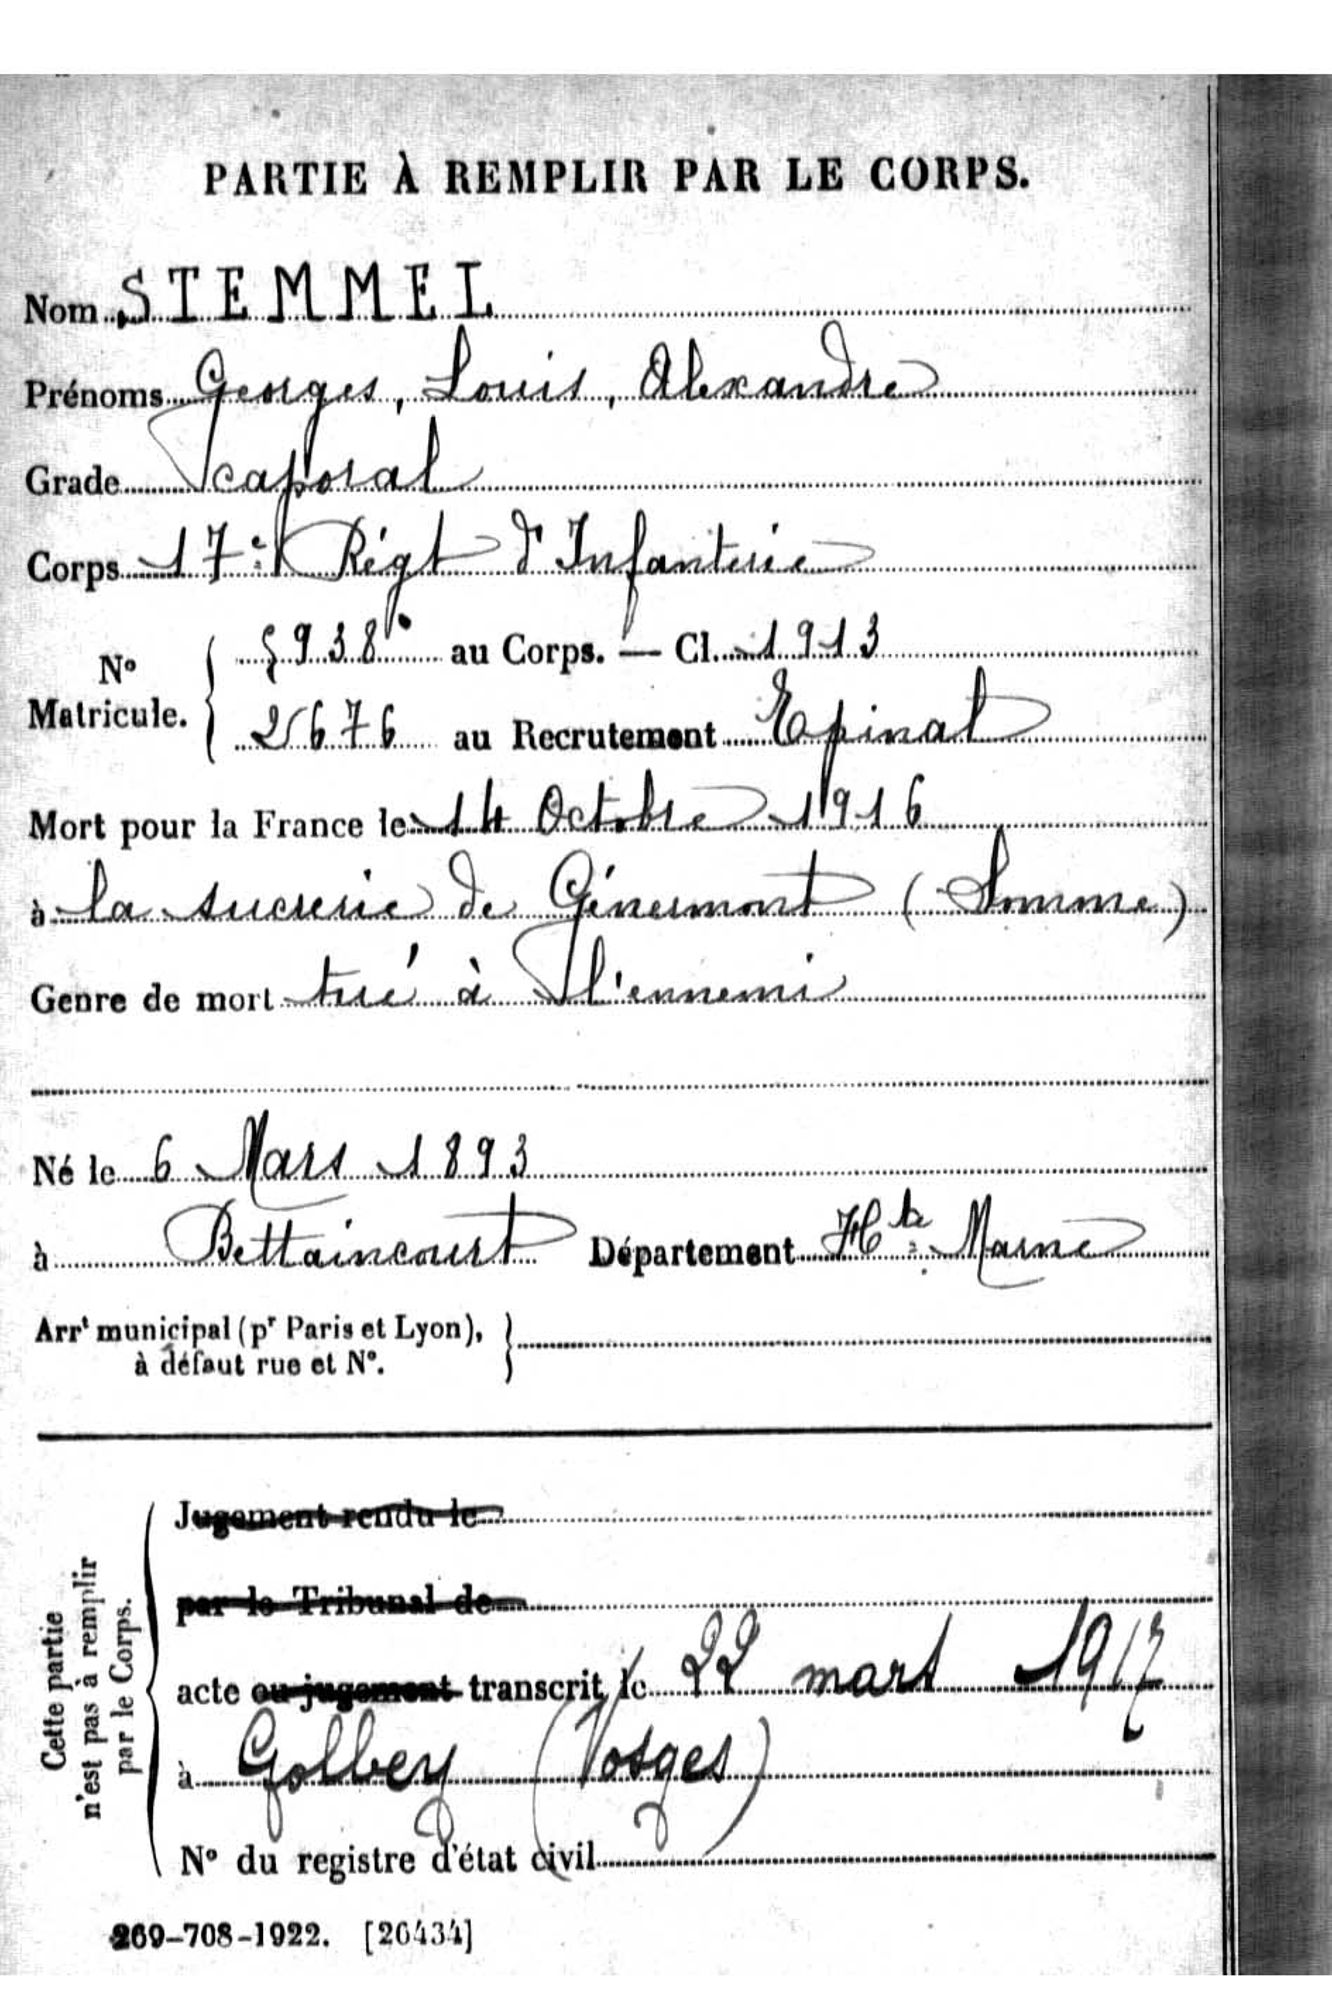 PARTIE À REMPLIR PAR LE CORPS.
Nom STEMMEL
Prénoms Georges, Louis, Alexandre
Grade caporal
Corps 17e Régt d'Infanterie
No Matricule. { 5938 au Corps. — Cl. 1913
2676 au Recrutement Epinal
Mort pour la France le 14 Octobre 1916
à la sucrerie de Génermont (Somme)
Genre de mort tué à l'ennemi
Né le 6 Mars 1893
à Bettaincourt Département Hte Marne
Arrt municipal (pr Paris et Lyon), }
à défaut rue et No.
Cette partie
n'est pas à remplir
par le Corps.
Jugement rendu le
par le Tribunal de
acte ou jugement transcrit le 22 mars 1917
à Golbey (Vosges)
No du registre d'état civil
269-708-1922. [26434]